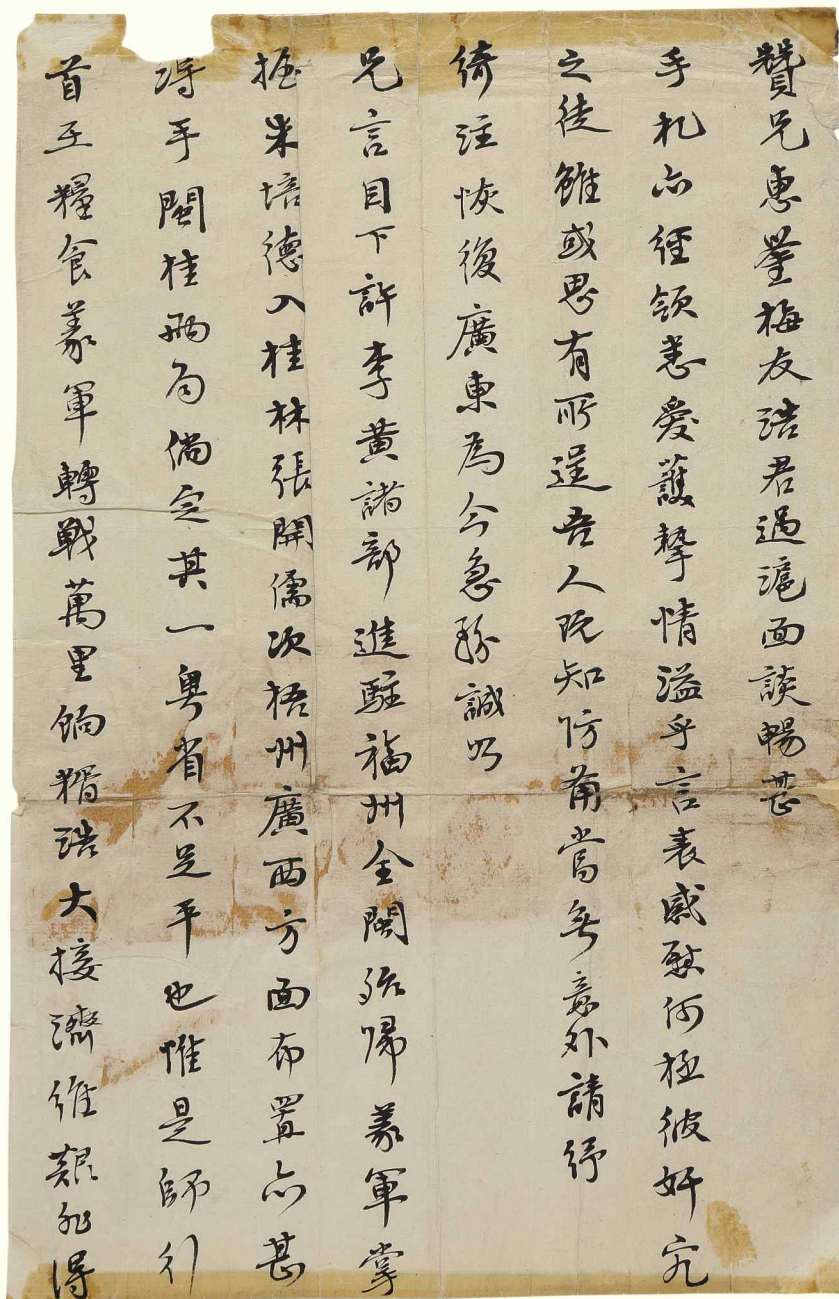 贊兄惠鑒梅友浩君過滬面談暢甚
手札亦經領悉愛護摯情溢乎言表感慰何極彼奸宄
之徒雖或思有所逞吾人既知防範當無意外請紓
綺注恢復廣東為今急務誠如
兄言目下許李黃諸部進駐福州全閩殆歸義軍掌
握朱培德入桂林張開儒次梧州廣西方面布置亦甚
得手閩桂兩局倘定其一粵省不足平也惟是師行
首在糧食義軍轉戰萬里餉糈浩大接濟維艱非得